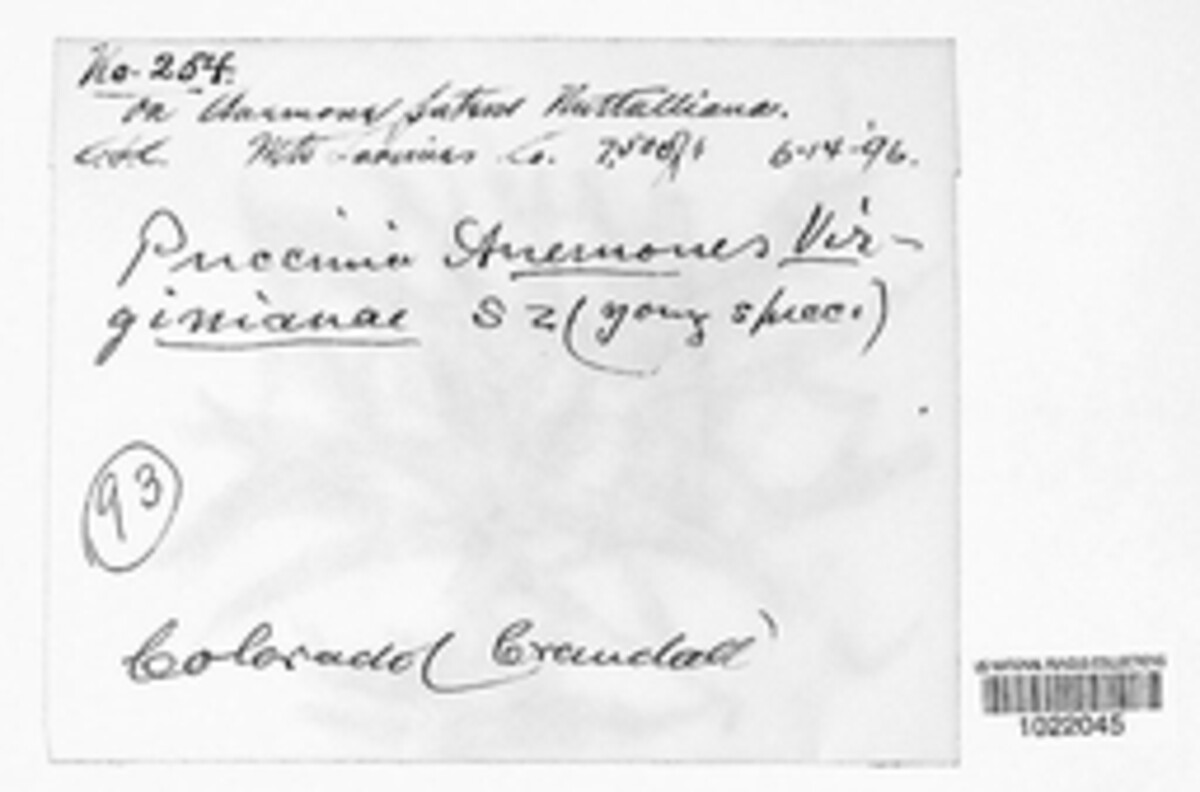 No. 254.
on Anemone patens Nuttalliana.
Col. Mts Larimer Co. 7,500 ft 6-14-'96.
Puccinia Anemones Vir-
ginianae S z (young spec.)
93
Colorado (Crandall)
US NATIONAL FUNGUS COLLECTIONS
1022045